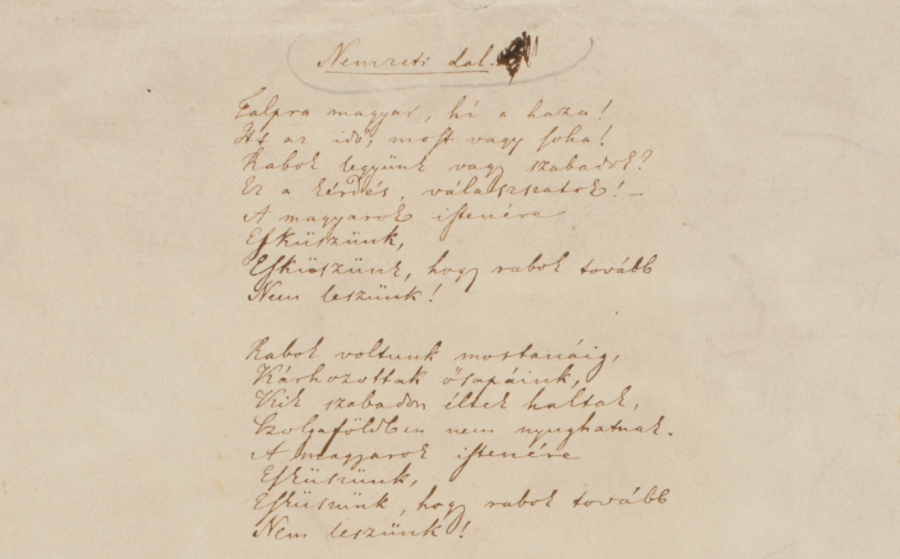 Nemzeti dal.
Talpra magyar, hí a haza!
Itt az idő, most vagy soha!
Rabok legyünk vagy szabadok?
Ez a kérdés, válaszszatok! –
A magyarok istenére
Esküszünk,
Esküszünk, hogy rabok tovább
Nem leszünk!
Rabok voltunk mostanáig,
Kárhozottak ősapáink,
Kik szabadon éltek haltak,
Szolgaföldben nem nyughatnak.
A magyarok istenére
Esküszünk,
Esküszünk, hogy rabok tovább
Nem leszünk!